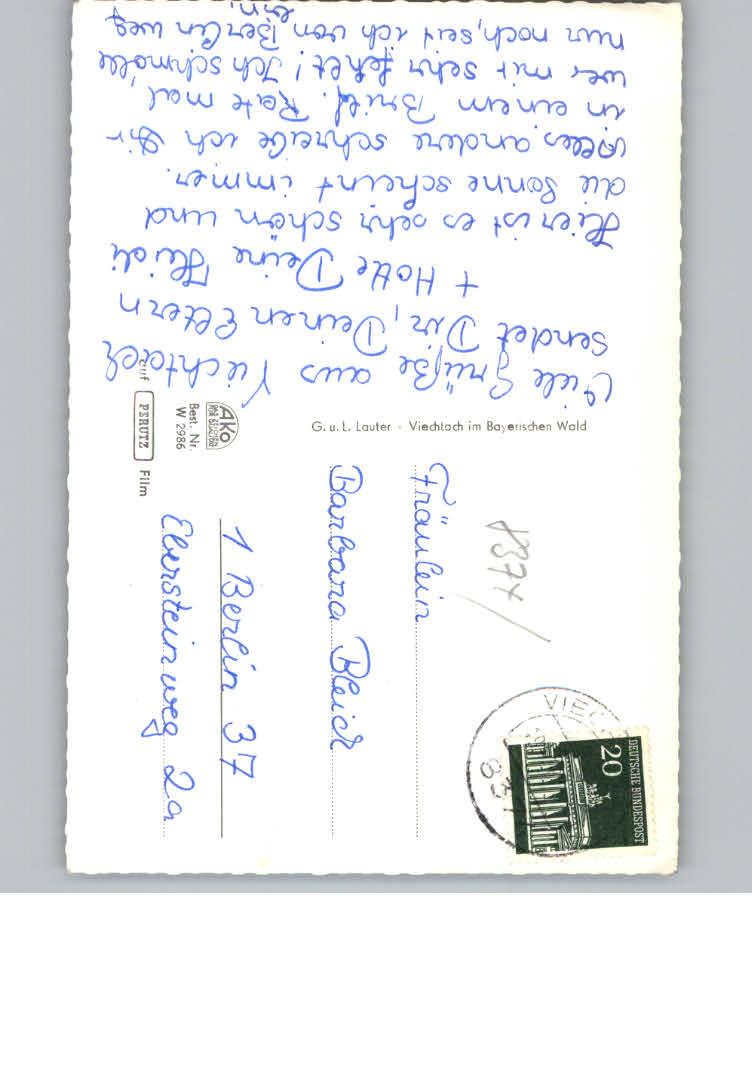 Viele Grüße aus Viechtach
sendet Dir, Deinen Eltern
+ Hotte Deine Heidi
Hier ist es sehr schön und
die Sonne scheint immer.
Alles andere schreibe ich Dir
in einem Brief. Rate mal,
wer mir sehr fehlt! Ich schmolle
nur noch, seit ich von Berlin weg
bin.
G. u. L. Lauter - Viechtach im Bayerischen Wald
AKO
Best. Nr.
W 2986
auf
PERUTZ
Film
8374
Fräulein
Barbara Bleich
1 Berlin 37
Ebersteinweg 2a
DEUTSCHE BUNDESPOST
20
VIEC
837